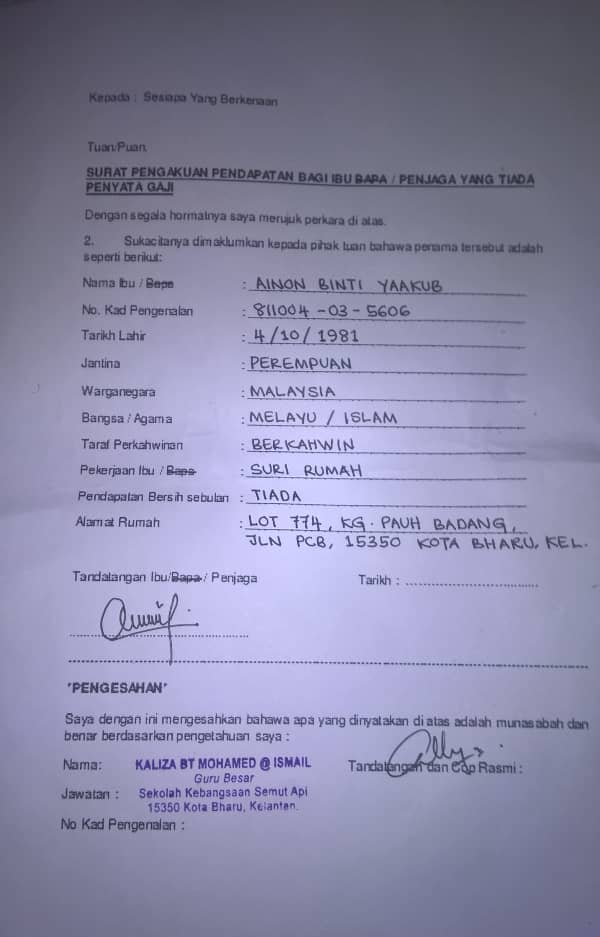 Kepada : Sesiapa Yang Berkenaan
Tuan/Puan,
SURAT PENGAKUAN PENDAPATAN BAGI IBU BAPA / PENJAGA YANG TIADA
PENYATA GAJI
Dengan segala hormatnya saya merujuk perkara di atas.
2. Sukacitanya dimaklumkan kepada pihak tuan bahawa penama tersebut adalah
seperti berikut:
Nama Ibu / Bapa : AINON BINTI YAAKUB
No. Kad Pengenalan : 811004-03-5606
Tarikh Lahir : 4/10/1981
Jantina : PEREMPUAN
Warganegara : MALAYSIA
Bangsa / Agama : MELAYU / ISLAM
Taraf Perkahwinan : BERKAHWIN
Pekerjaan Ibu / Bapa : SURI RUMAH
Pendapatan Bersih sebulan : TIADA
Alamat Rumah : LOT 774, KG. PAUH BADANG,
JLN PCB, 15350 KOTA BHARU, KEL.
Tandalangan Ibu/Bapa / Penjaga Tarikh : ................................
"PENGESAHAN"
Saya dengan ini mengesahkan bahawa apa yang dinyatakan di atas adalah munasabah dan
benar berdasarkan pengetahuan saya :
Nama: KALIZA BT MOHAMED @ ISMAIL Tandatangan dan Cop Rasmi :
Guru Besar
Jawatan : Sekolah Kebangsaan Semut Api
15350 Kota Bharu, Kelantan.
No Kad Pengenalan :